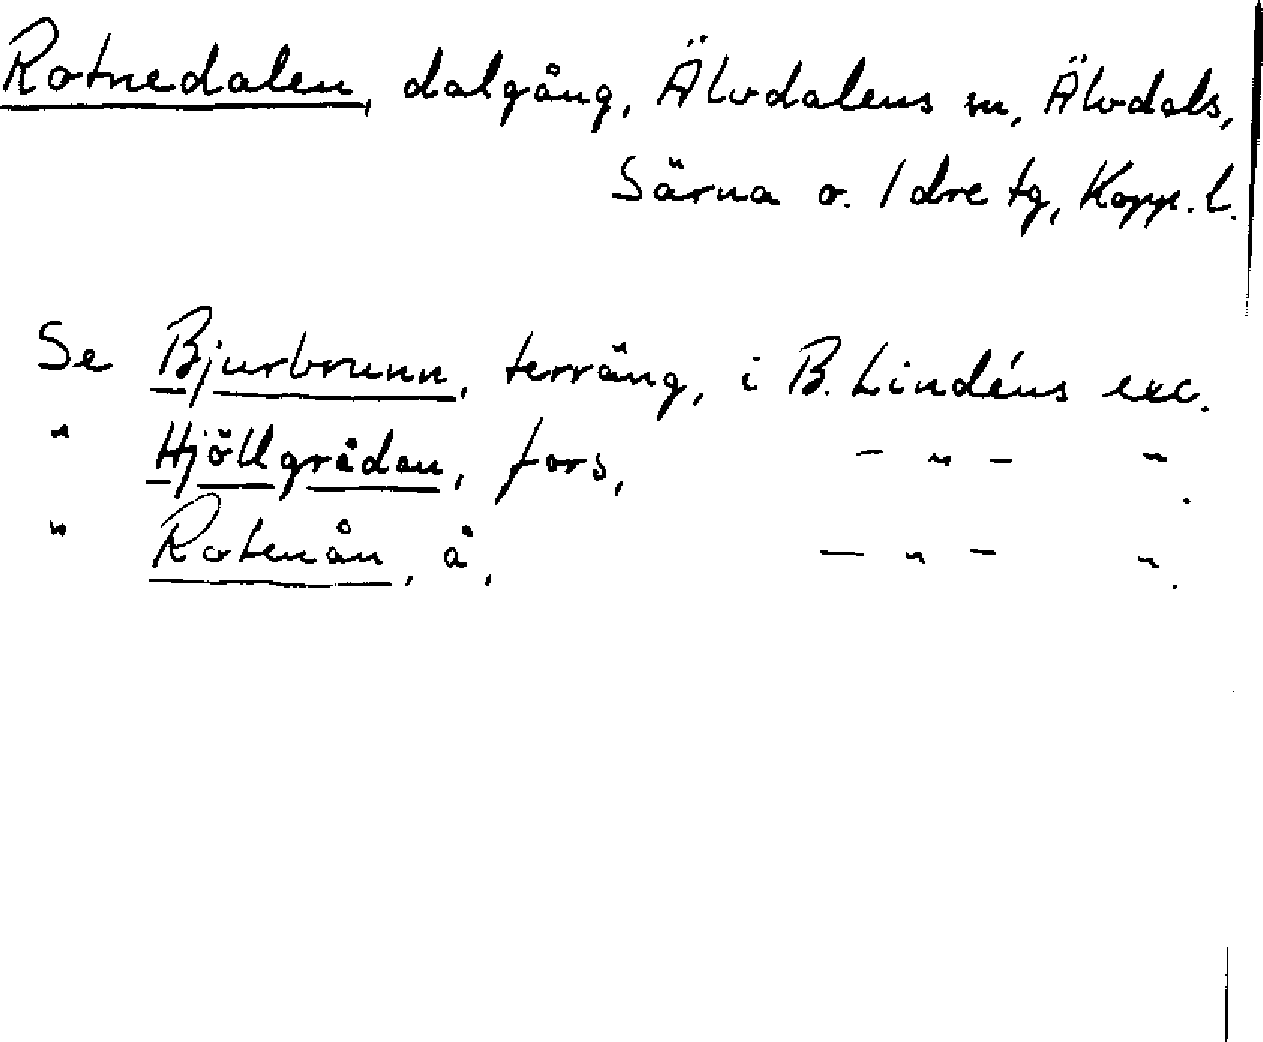 Rotnedalen, dalgång, Älvdalens m, Älvdals,
Särna o. Idre tg, Kopp. l.
Se Bjurbrunn, terräng, i B. Lindéns exc.
" Hjållgrådan, fors, - " - ".
" Rotenån, å, - " - ".